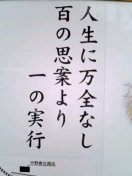 人生に万全なし
百の思案より
一の実行